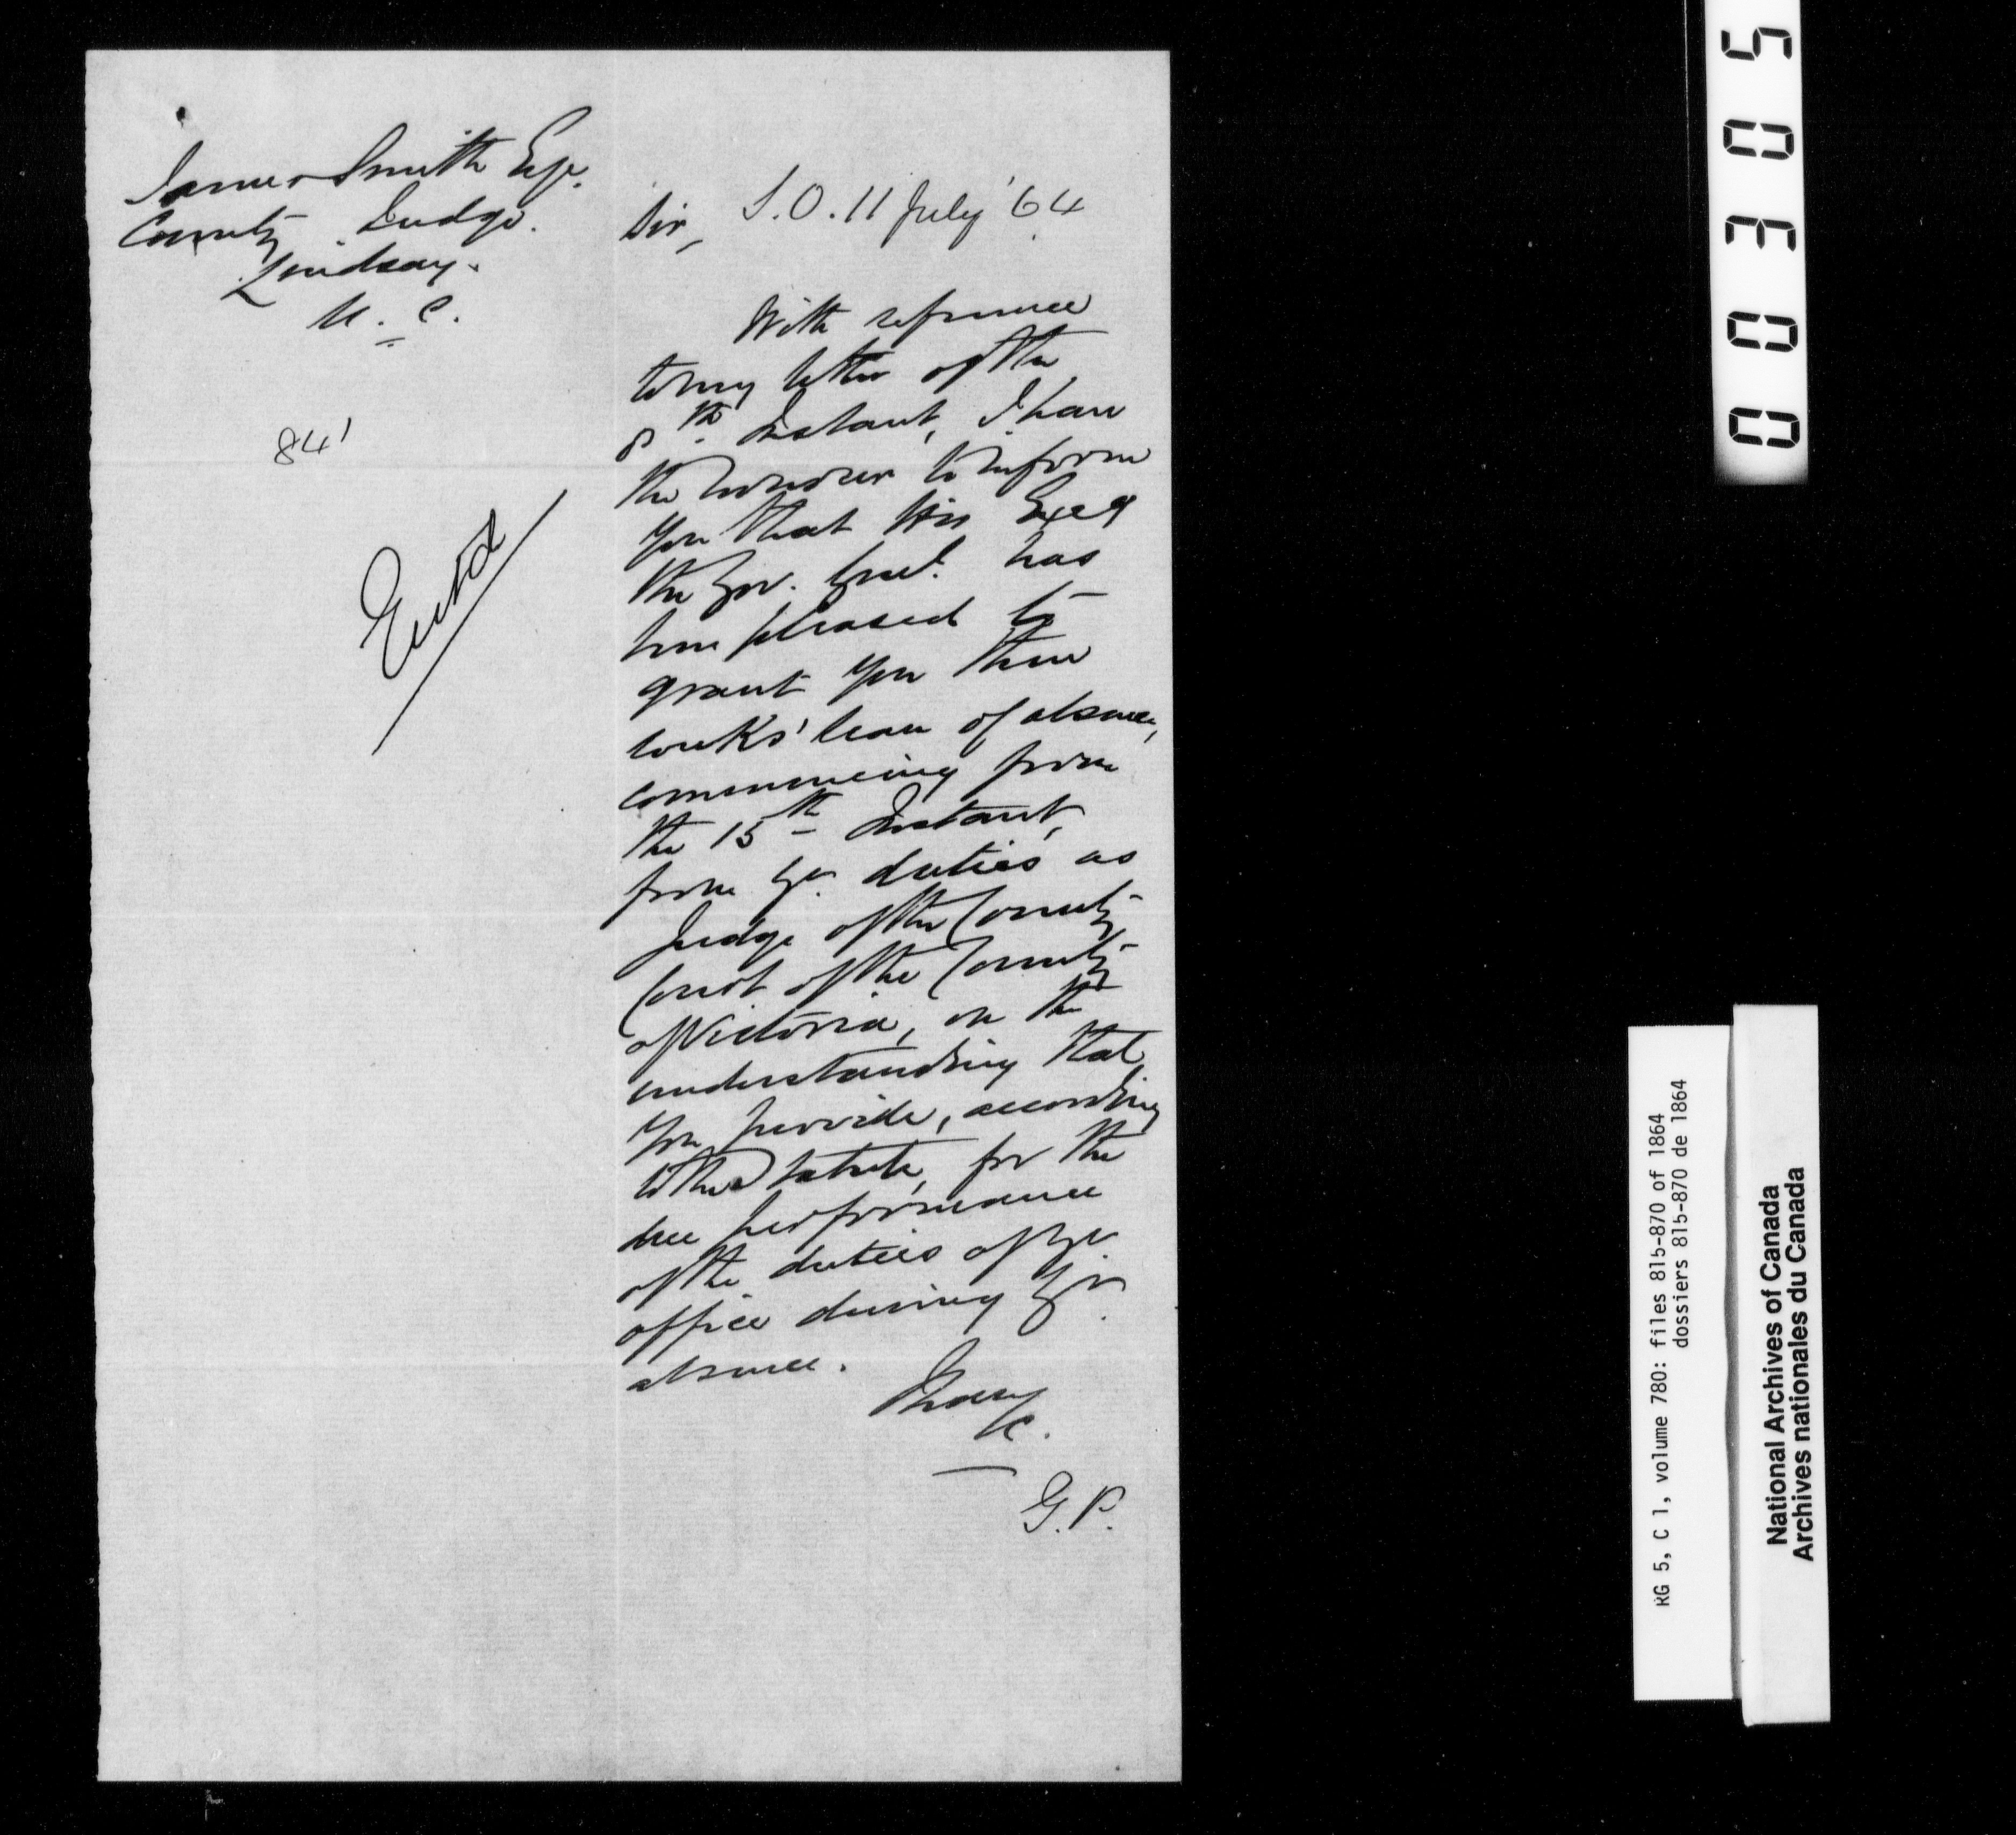 James Smith Esqr.
County Judge.
Lindsay.
U. C.
841
Entd
S.O. 11 July '64
Sir,
With reference
to my letter of the
8th Instant, I have
the honour to inform
you that His Excy
the Gov. Genl. has
been pleased to
grant you three
weeks' leave of absence,
commencing from
the 15th Instant,
from yr. duties as
Judge of the County
Court of the County
of Victoria, on the
understanding that
you provide, according
to the Statute, for the
due performance
of the duties of yr.
office during yr.
absence.
I have
&c.
G. P.
00305
RG 5, C 1, volume 780: files 815-870 of 1864
dossiers 815-870 de 1864
National Archives of Canada
Archives nationales du Canada